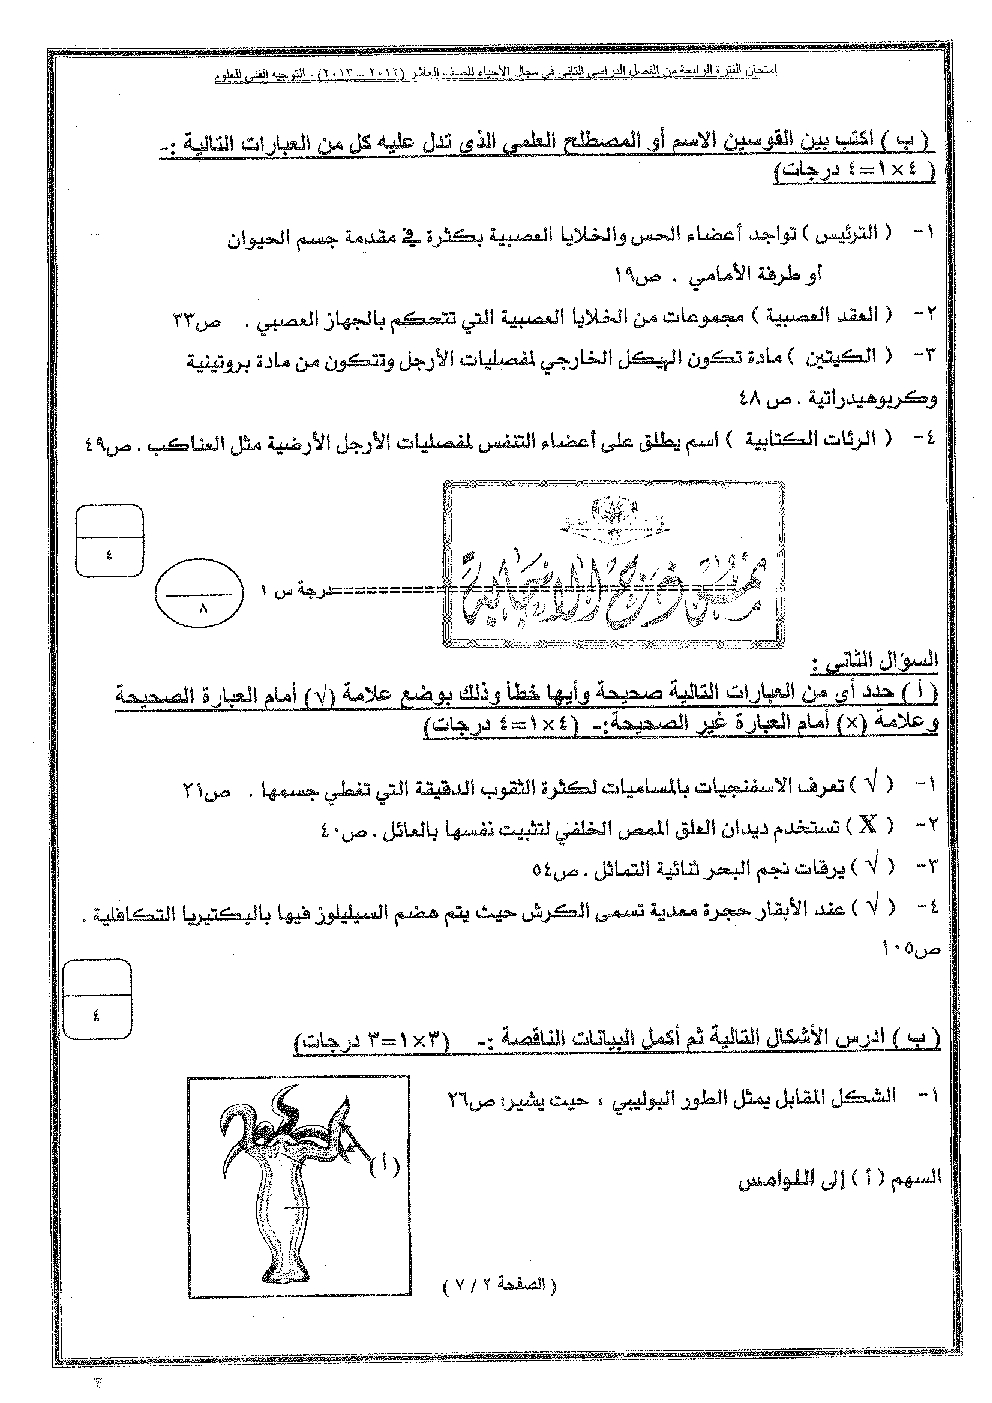 امتحان الفترة الرابعة من الفصل الدراسي الثاني في مجال الأحياء للصف العاشر (٢٠١٢ – ٢٠١٣) - التوجيه الفني للعلوم
( ب ) اكتب بين القوسين الاسم أو المصطلح العلمي الذي تدل عليه كل من العبارات التالية :-
( ٤ × ١ = ٤ درجات)
١- ( الترئيس ) تواجد أعضاء الحس والخلايا العصبية بكثرة في مقدمة جسم الحيوان
أو طرفة الأمامي . ص١٩
٢- ( العقد العصبية ) مجموعات من الخلايا العصبية التي تتحكم بالجهاز العصبي . ص٣٣
٣- ( الكيتين ) مادة تكون الهيكل الخارجي لمفصليات الأرجل وتتكون من مادة بروتينية
وكربوهيدراتية . ص ٤٨
٤- ( الرئات الكتابية ) اسم يطلق على أعضاء التنفس لمفصليات الأرجل الأرضية مثل العناكب . ص٤٩
٤
درجة س ١
٨
نموذج الإجابة
السؤال الثاني :
( أ ) حدد أي من العبارات التالية صحيحة وأيها خطأ وذلك بوضع علامة (√) أمام العبارة الصحيحة
وعلامة (×) أمام العبارة غير الصحيحة:- (٤ × ١ = ٤ درجات)
١- ( √ ) تعرف الاسفنجيات بالمساميات لكثرة الثقوب الدقيقة التي تغطي جسمها . ص٢١
٢- ( X ) تستخدم ديدان العلق الممص الخلفي لتثبيت نفسها بالعائل . ص٤٠
٣- ( √ ) يرقات نجم البحر ثنائية التماثل . ص٥٤
٤- ( √ ) عند الأبقار حجرة معدية تسمى الكرش حيث يتم هضم السيليلوز فيها بالبكتيريا التكافلية .
ص١٠٥
٤
( ب ) ادرس الأشكال التالية ثم أكمل البيانات الناقصة :- (٣ × ١ = ٣ درجات)
١- الشكل المقابل يمثل الطور البوليبي ، حيث يشير: ص٢٦
(أ)
السهم ( أ ) إلى اللوامس
( الصفحة ٢ / ٧ )